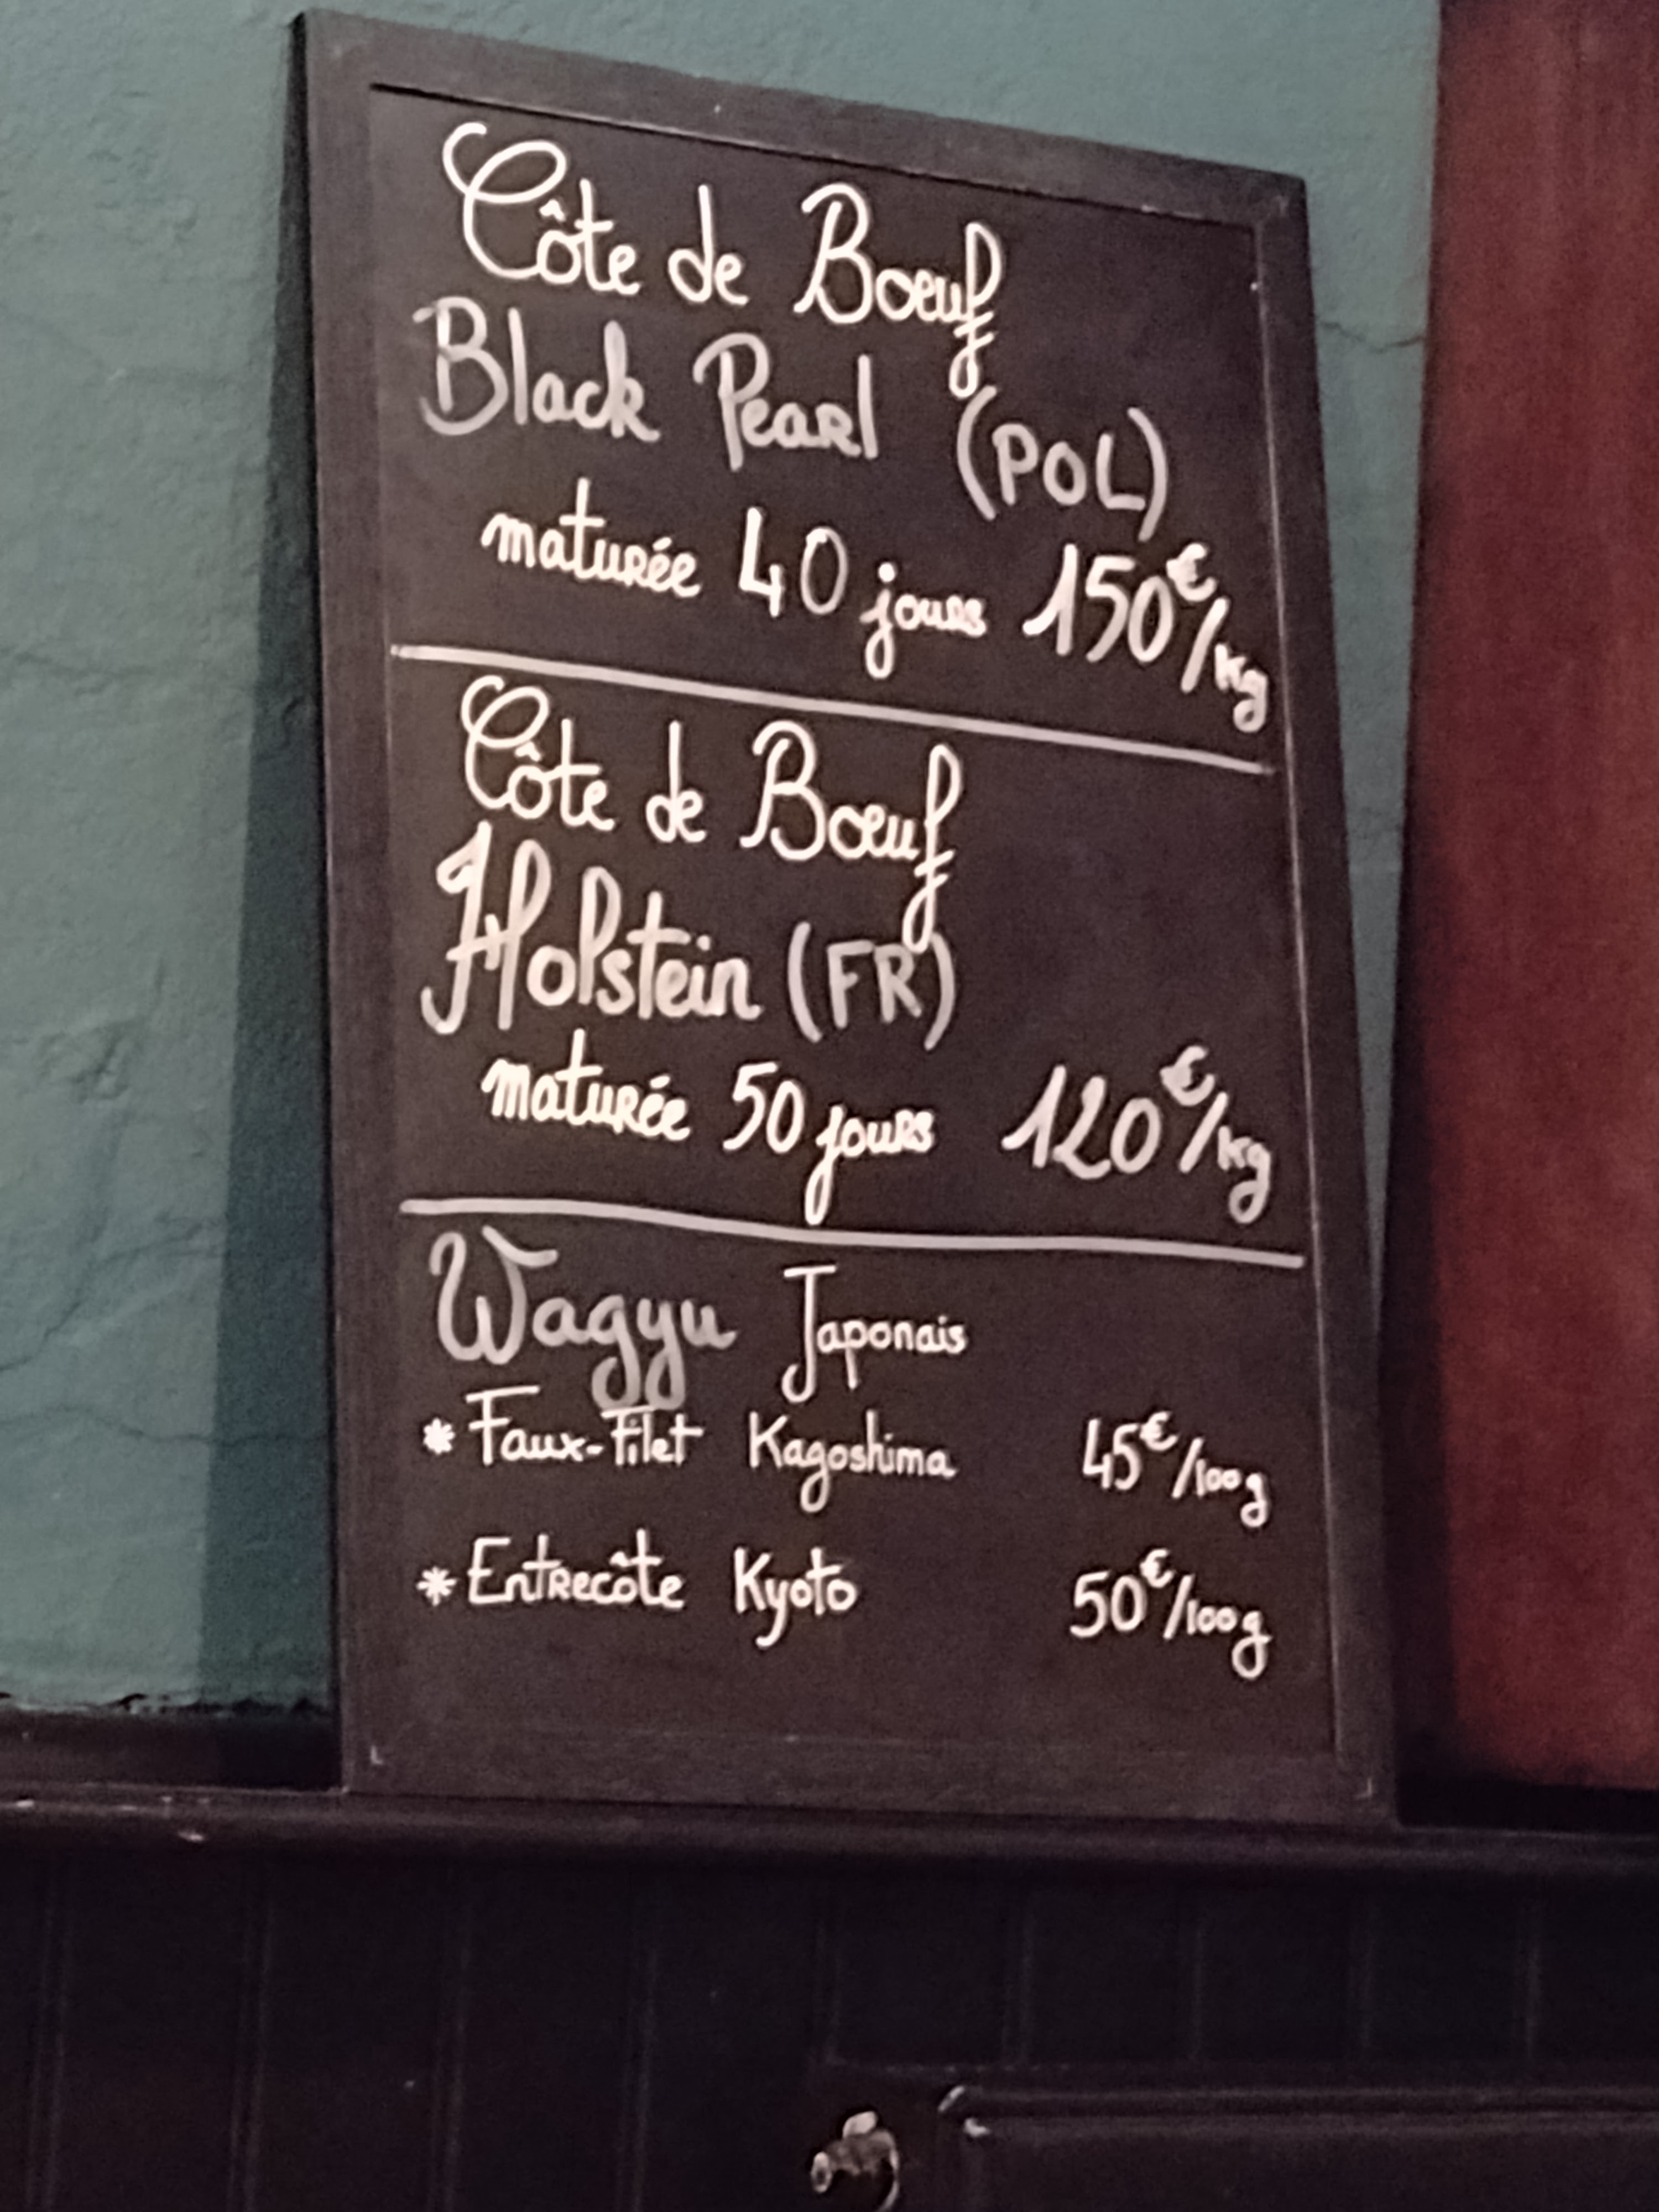 Côte de Boeuf
Black Pearl (POL)
maturée 40 jours 150€/kg
Côte de Bœuf
Holstein (FR)
maturée 50 jours 120€/kg
Wagyu Japonais
* Faux-Filet Kagoshima 45€/100g
* Entrecôte Kyoto 50€/100g